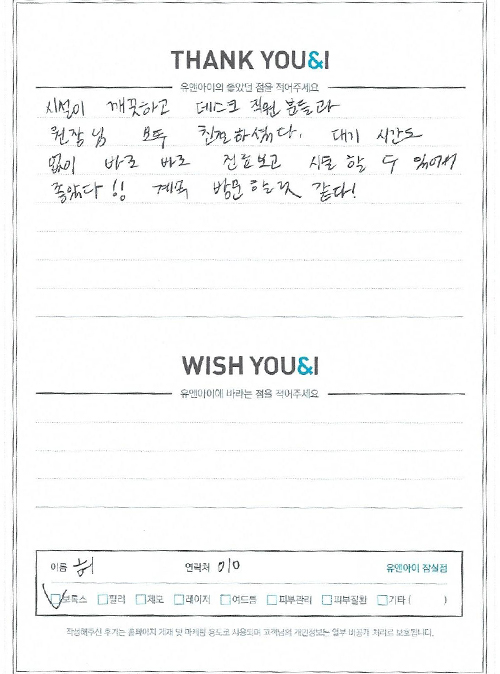 THANK YOU&I
유앤아이의 좋았던 점을 적어주세요
시설이 깨끗하고 데스크 직원 분들과
원장님 모두 친절하셨다. 대기 시간도
없이 바로 바로 진료보고 시술 할 수 있어서
좋았다!! 계속 방문 할 것 같다!
WISH YOU&I
유앤아이에 바라는 점을 적어주세요
이름 허 연락처 010 유앤아이 잠실점
보톡스 필러 제모 레이저 여드름 피부관리 피부질환 기타 ( )
작성해주신 후기는 홈페이지 게재 및 마케팅 용도로 사용되며 고객님의 개인정보는 일부 비공개 처리로 보호됩니다.